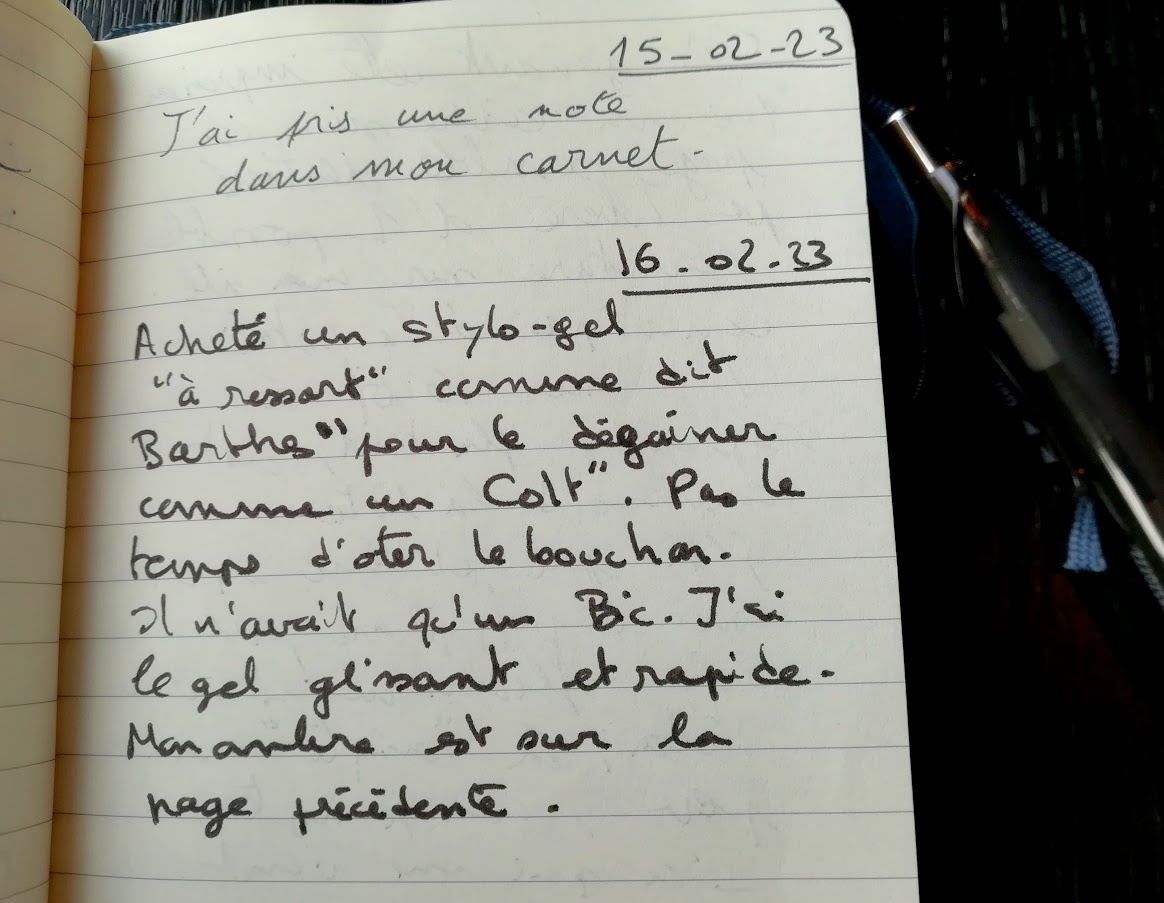 15-02-23
J'ai pris une note
dans mon carnet.
16.02.23
Acheté un stylo-gel
"à ressort" comme dit
Barthes "pour le dégainer
comme un Colt". Pas le
temps d'oter le bouchon.
Il n'avait qu'un Bic. J'ai
le gel glissant et rapide.
Mon ombre est sur la
page précédente.